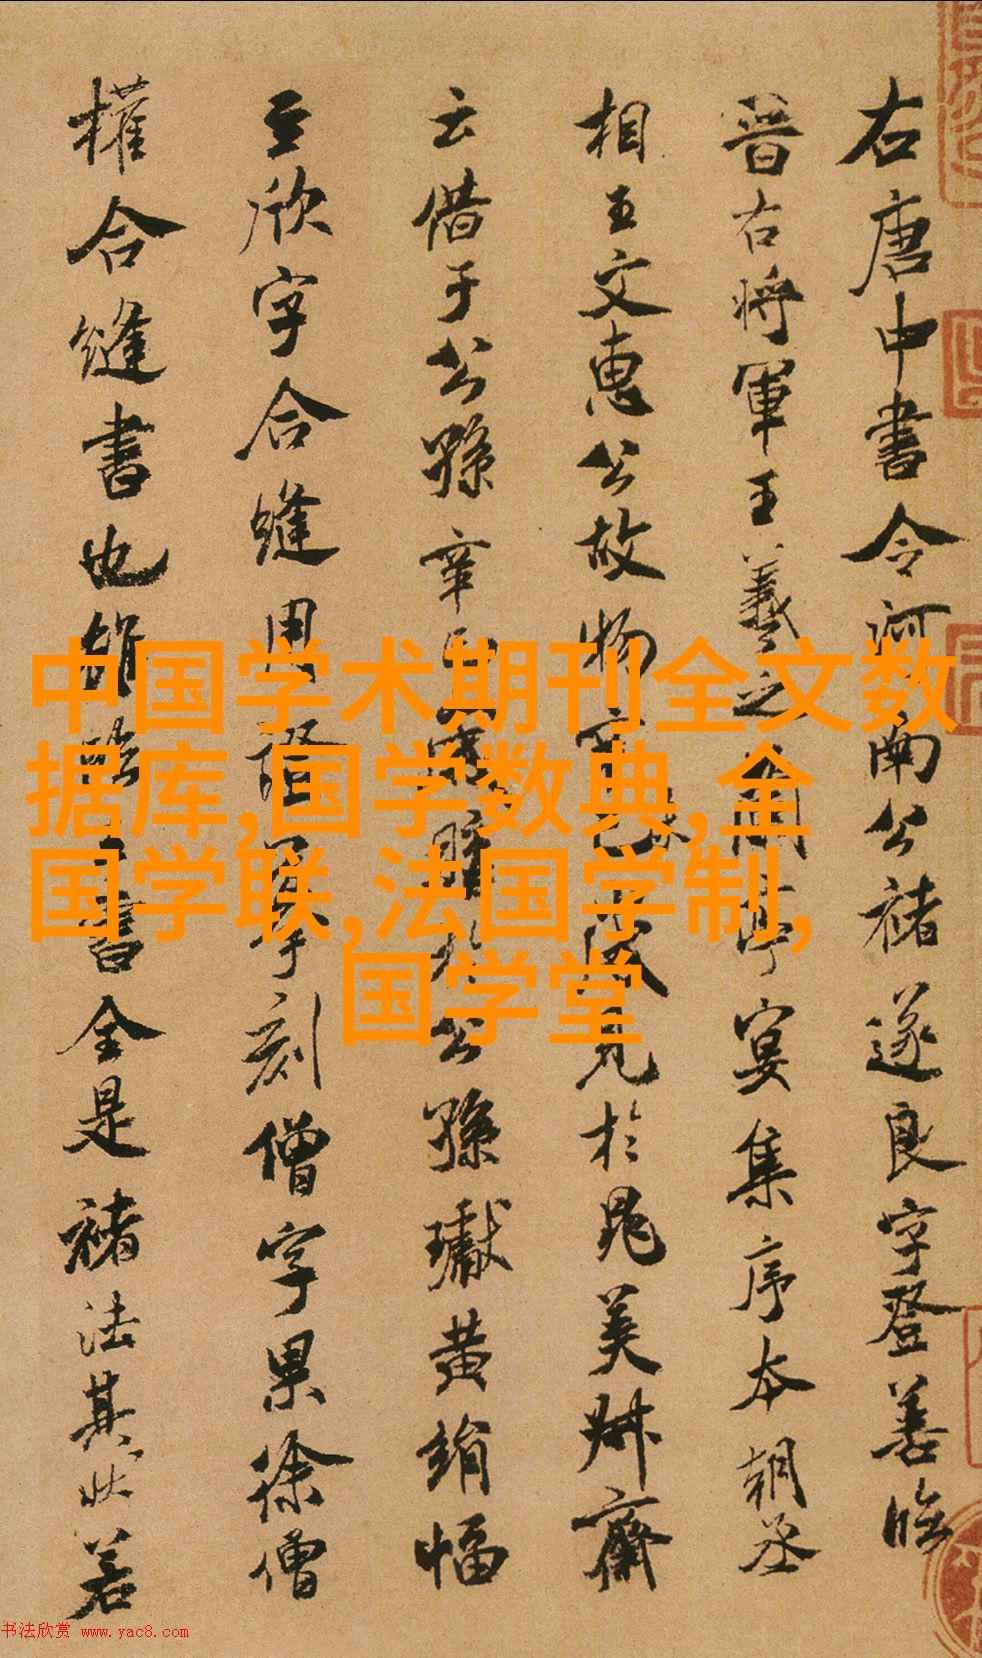 右唐中書令河南公褚遂良字登善臨
晉右將軍王羲之蘭亭宴集序本朝丞
相王文惠公故物辛巳歲見於晁美叔齋
云借于公孫辛巳歲購於公孫瓛黄絹幅
至欣字合縫用證摹刻僧字果徐僧
權合縫書也雖臨王書全是褚法其狀若
中国学术期刊全文数
据库,国学数典,全
国学联,法国学制,
国学堂
书法欣赏 www.yac8.com